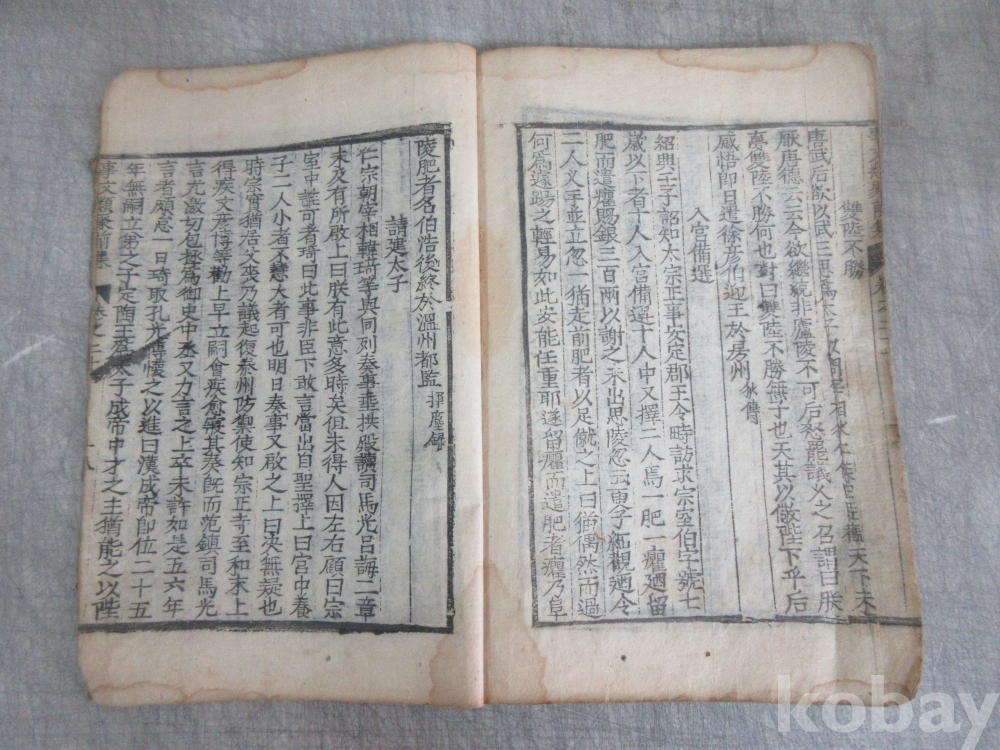 雙陸不勝
唐武后欲以武三思爲太子以問
厭唐德云云今欲繼統非廬陵不可后怒罷議久之召謂曰朕
夢雙陸不勝何也對曰雙陸不勝無子也天其以儆陛下乎后
感悟即日遣徐彦伯迎王於房州
入宮備選
紹興壬子詔知太宗正事安定郡王令時訪求宗室伯字號七
歲以下者十人入宮備選十人中又擇二人焉一肥一癯廼留
肥而遣癯賜銀三百兩以謝之未出思陵忽云更子細觀廼令
二人叉手並立忽一猫走前肥者以足蹴之上曰猫偶然而過
何爲遽踢之輕易如此安能任重耶遂留癯而遣肥者癯乃阜
陵肥者名伯浩後終於溫州都監 揮塵錄
請建太子
仁宗朝宰相韓琦等與同列奏事垂拱殿讀司馬光呂誨二章
未及有所啟上曰朕有此意多時矣但未得人因左右顧曰宗
室中誰可者琦曰此事非臣下敢言當出自聖擇上曰宮中養
子二人小者不慧大者可也明日奏事又啟之上曰決無疑也
時宗實猶居父喪乃議起復泰州防禦使知宗正寺至和末上
得疾文彦博等勸上早立嗣會疾愈寢其奏既而范鎮司馬光
言尤激切包拯爲御史中丞又力言之上卒未許如是五六年
言者頗怠一日琦取孔光傳懷之以進曰漢成帝即位二十五
年無嗣立弟之子定陶王爲太子成帝中才之主猶能之以陛
事文類聚前集
kobay